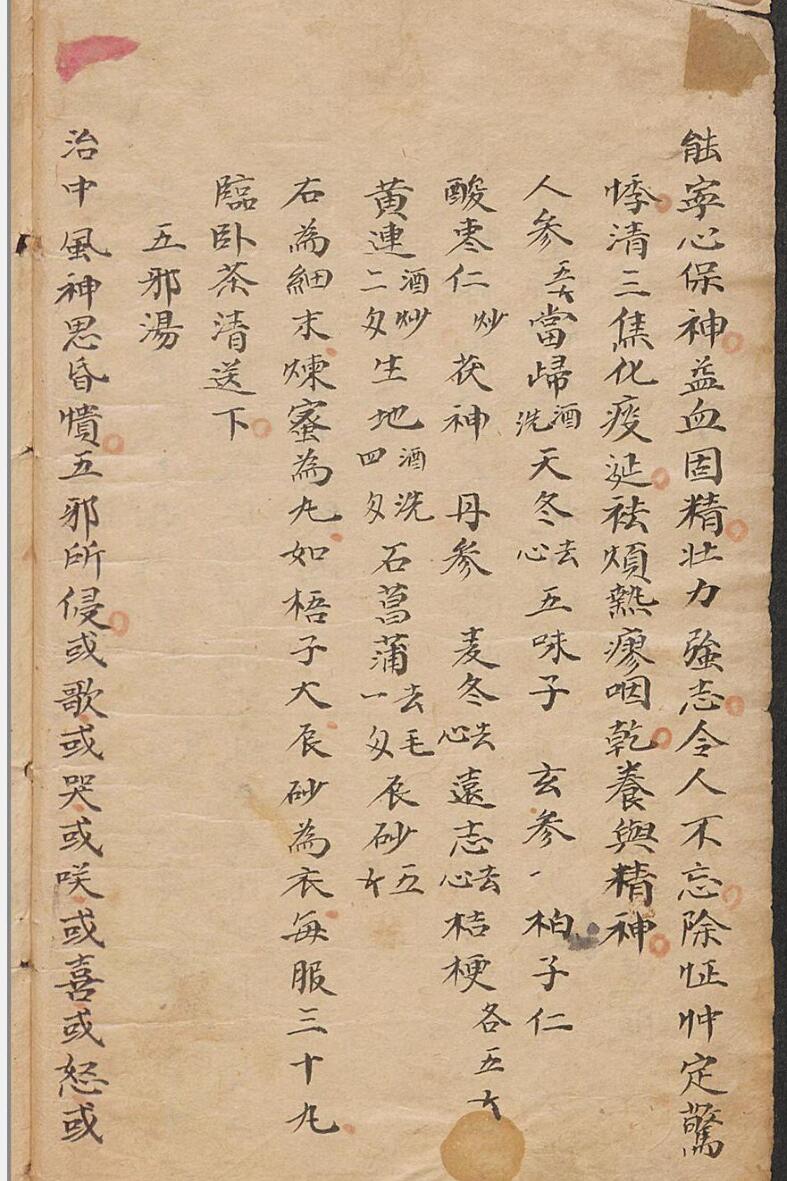 能寧心保神益血固精壯力強志令人不忘除怔忡定驚
悸清三焦化痰涎祛煩熱療咽乾養與精神
人參五錢當歸酒洗天冬去心五味子玄參柏子仁
酸棗仁炒茯神丹參麦冬去心遠志去心桔梗各五錢
黄連酒炒二匁生地酒洗四匁石菖蒲去毛一匁辰砂五錢
右為細末煉蜜為丸如梧子大辰砂為衣每服三十丸
臨卧茶清送下
五邪湯
治中風神思昏憒五邪所侵或歌或哭或咲或喜或怒或